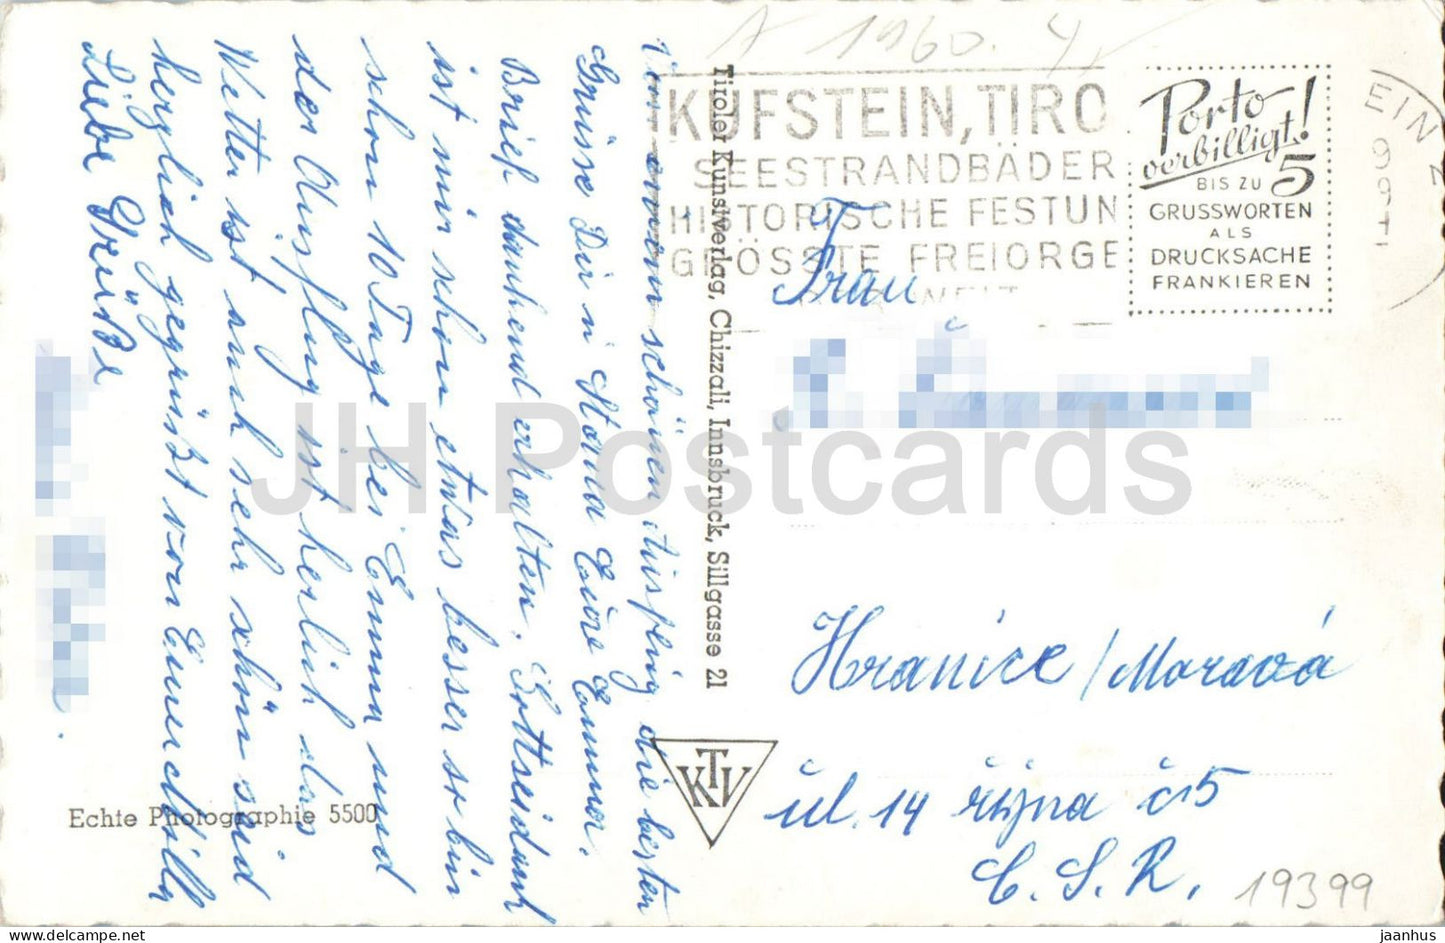 A 1960. Y
KUFSTEIN, TIRO
SEESTRANDBÄDER
HISTORISCHE FESTUN
GRÖSSTE FREIORGE
WELT
Porto
verbilligt!
BIS ZU 5
GRUSSWORTEN
ALS
DRUCKSACHE
FRANKIEREN
EIN
Vom schönen Ausflug die besten
Grüsse Dir u Mama Eure Emma.
Brief dankend erhalten. Gottseidank
ist mir schon etwas besser so bin
schon 10 Tage bei Emma und
der Ausflug ist herlich das
Wetter ist auch sehr schön seid
herzlich gegrüßt von
Liebe Grüße
Tiroler Kunstverlag, Chizzali, Innsbruck, Sillgasse 21
KTV
Echte Photographie 5500
Frau
Hranice / Morava
ul. 14 října č 5
Č. S. R.
19399
JH Postcards
jaanhus